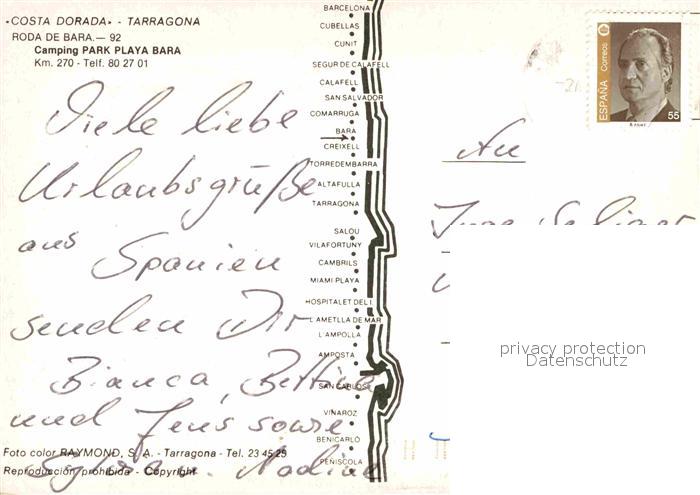 «COSTA DORADA» - TARRAGONA
RODA DE BARA.— 92
Camping PARK PLAYA BARA
Km. 270 - Telf. 80 27 01
Viele liebe
Urlaubsgrüße
aus Spanien
senden Dir
Bianca, Bettina
und Jens sowie
Nadine
Foto color RAYMOND, S. A. - Tarragona - Tel. 23 45 25
Reproducción prohibida - Copyright
BARCELONA
CUBELLAS
CUNIT
SEGUR DE CALAFELL
CALAFELL
SAN SALVADOR
COMARRUGA
BARA
CREIXELL
TORREDEMBARRA
ALTAFULLA
TARRAGONA
SALOU
VILAFORTUNY
CAMBRILS
MIAMI PLAYA
HOSPITALET DEL I.
L'AMETLLA DE MAR
L'AMPOLLA
AMPOSTA
SAN CARLOS
VINAROZ
BENICARLÓ
PEÑISCOLA
ESPAÑA
Correos
55
An
privacy protection
Datenschutz